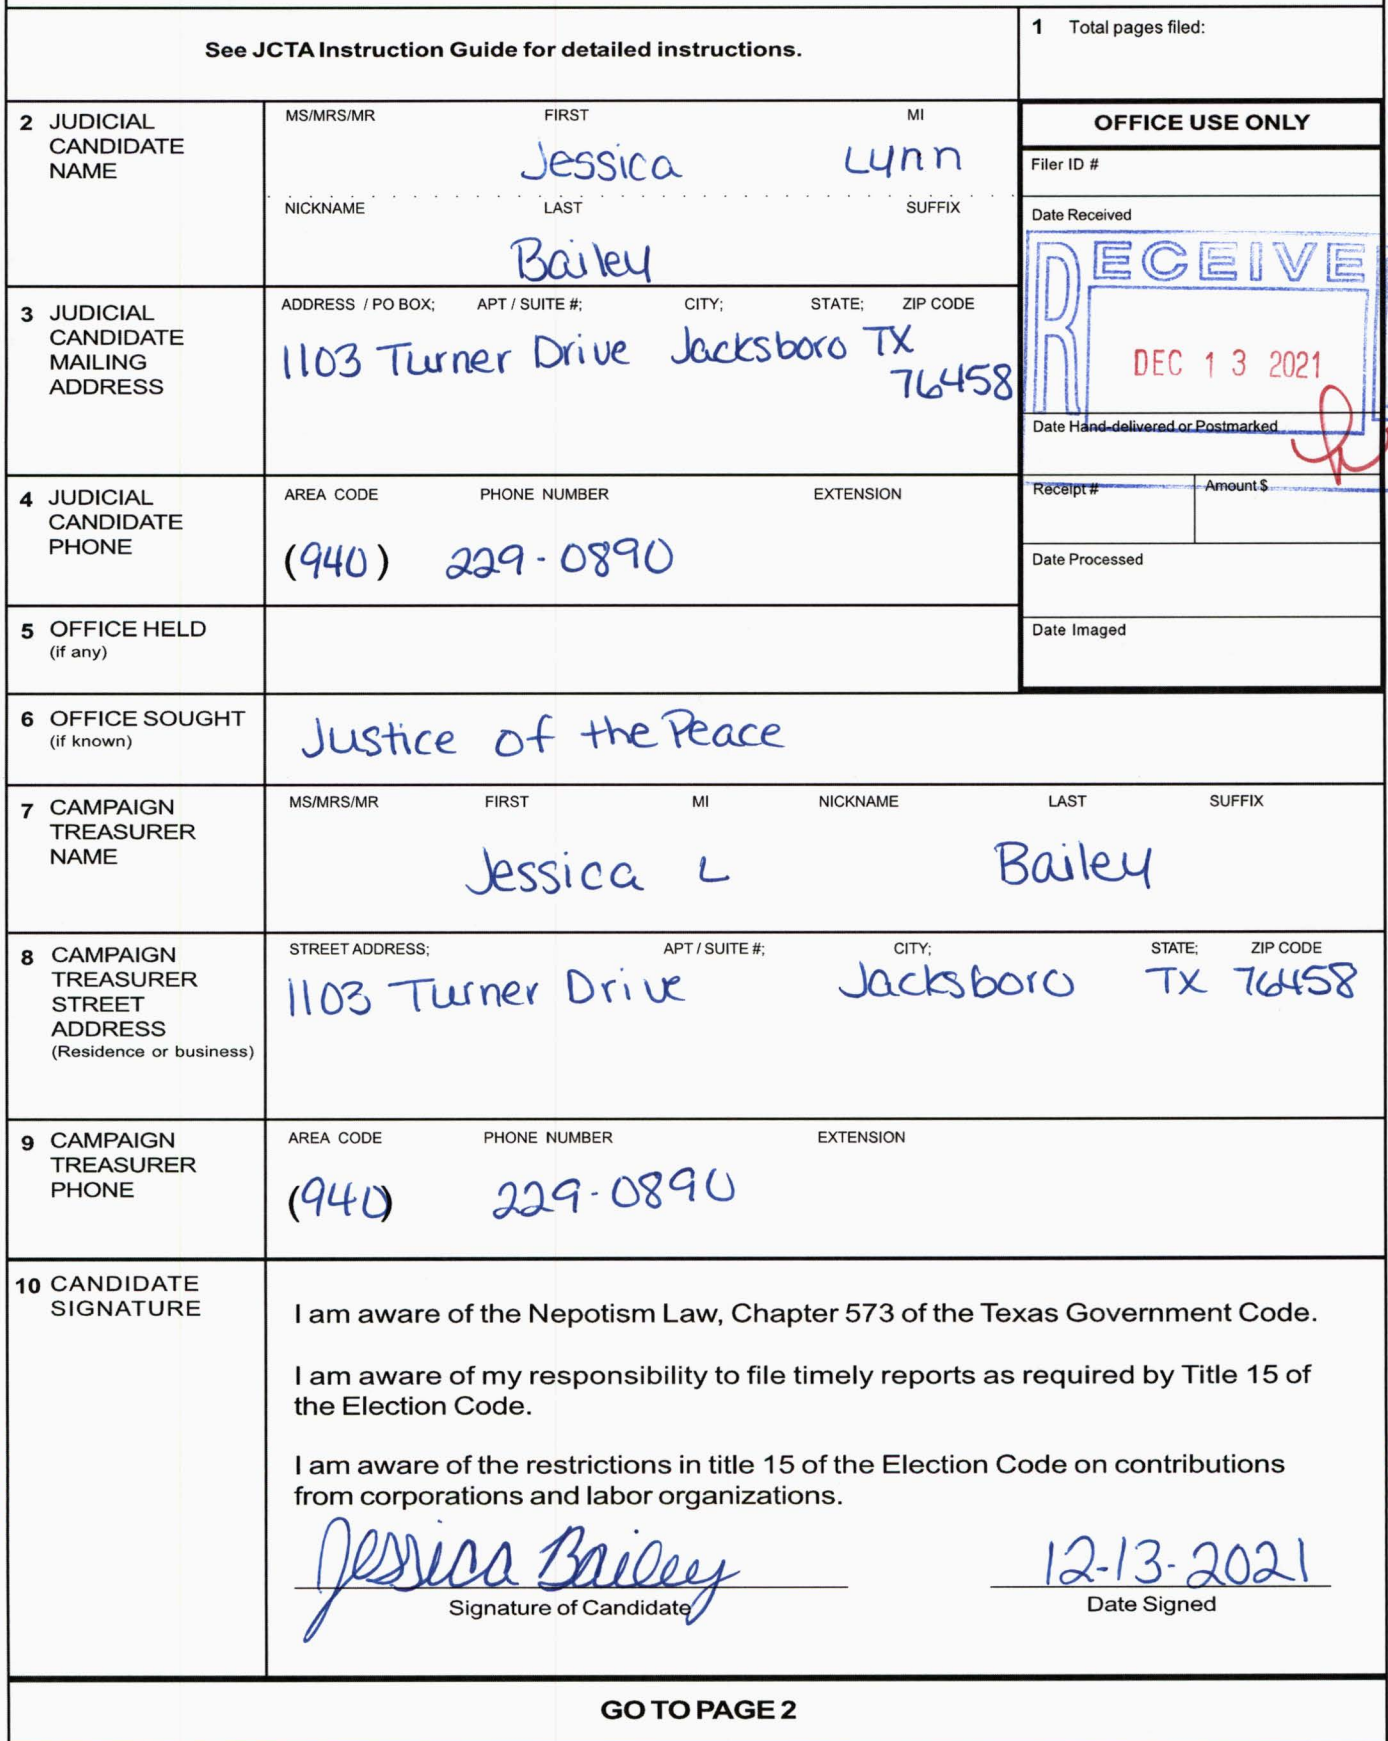 See JCTA Instruction Guide for detailed instructions.
1 Total pages filed:
2 JUDICIAL CANDIDATE NAME
MS/MRS/MR FIRST MI
Jessica Lynn
NICKNAME LAST SUFFIX
Bailey
OFFICE USE ONLY
Filer ID #
Date Received
RECEIVE
DEC 13 2021
Date Hand-delivered or Postmarked
Receipt # Amount $
Date Processed
Date Imaged
3 JUDICIAL CANDIDATE MAILING ADDRESS
ADDRESS / PO BOX; APT / SUITE #; CITY; STATE; ZIP CODE
1103 Turner Drive Jacksboro TX
76458
4 JUDICIAL CANDIDATE PHONE
AREA CODE PHONE NUMBER EXTENSION
(940) 229-0890
5 OFFICE HELD
(if any)
6 OFFICE SOUGHT
(if known)
Justice of the Peace
7 CAMPAIGN TREASURER NAME
MS/MRS/MR FIRST MI NICKNAME LAST SUFFIX
Jessica L Bailey
8 CAMPAIGN TREASURER STREET ADDRESS
(Residence or business)
STREET ADDRESS; APT / SUITE #; CITY; STATE; ZIP CODE
1103 Turner Drive Jacksboro TX 76458
9 CAMPAIGN TREASURER PHONE
AREA CODE PHONE NUMBER EXTENSION
(940) 229-0890
10 CANDIDATE SIGNATURE
I am aware of the Nepotism Law, Chapter 573 of the Texas Government Code.
I am aware of my responsibility to file timely reports as required by Title 15 of
the Election Code.
I am aware of the restrictions in title 15 of the Election Code on contributions
from corporations and labor organizations.
Jessica Bailey 12-13-2021
Signature of Candidate Date Signed
GO TO PAGE 2